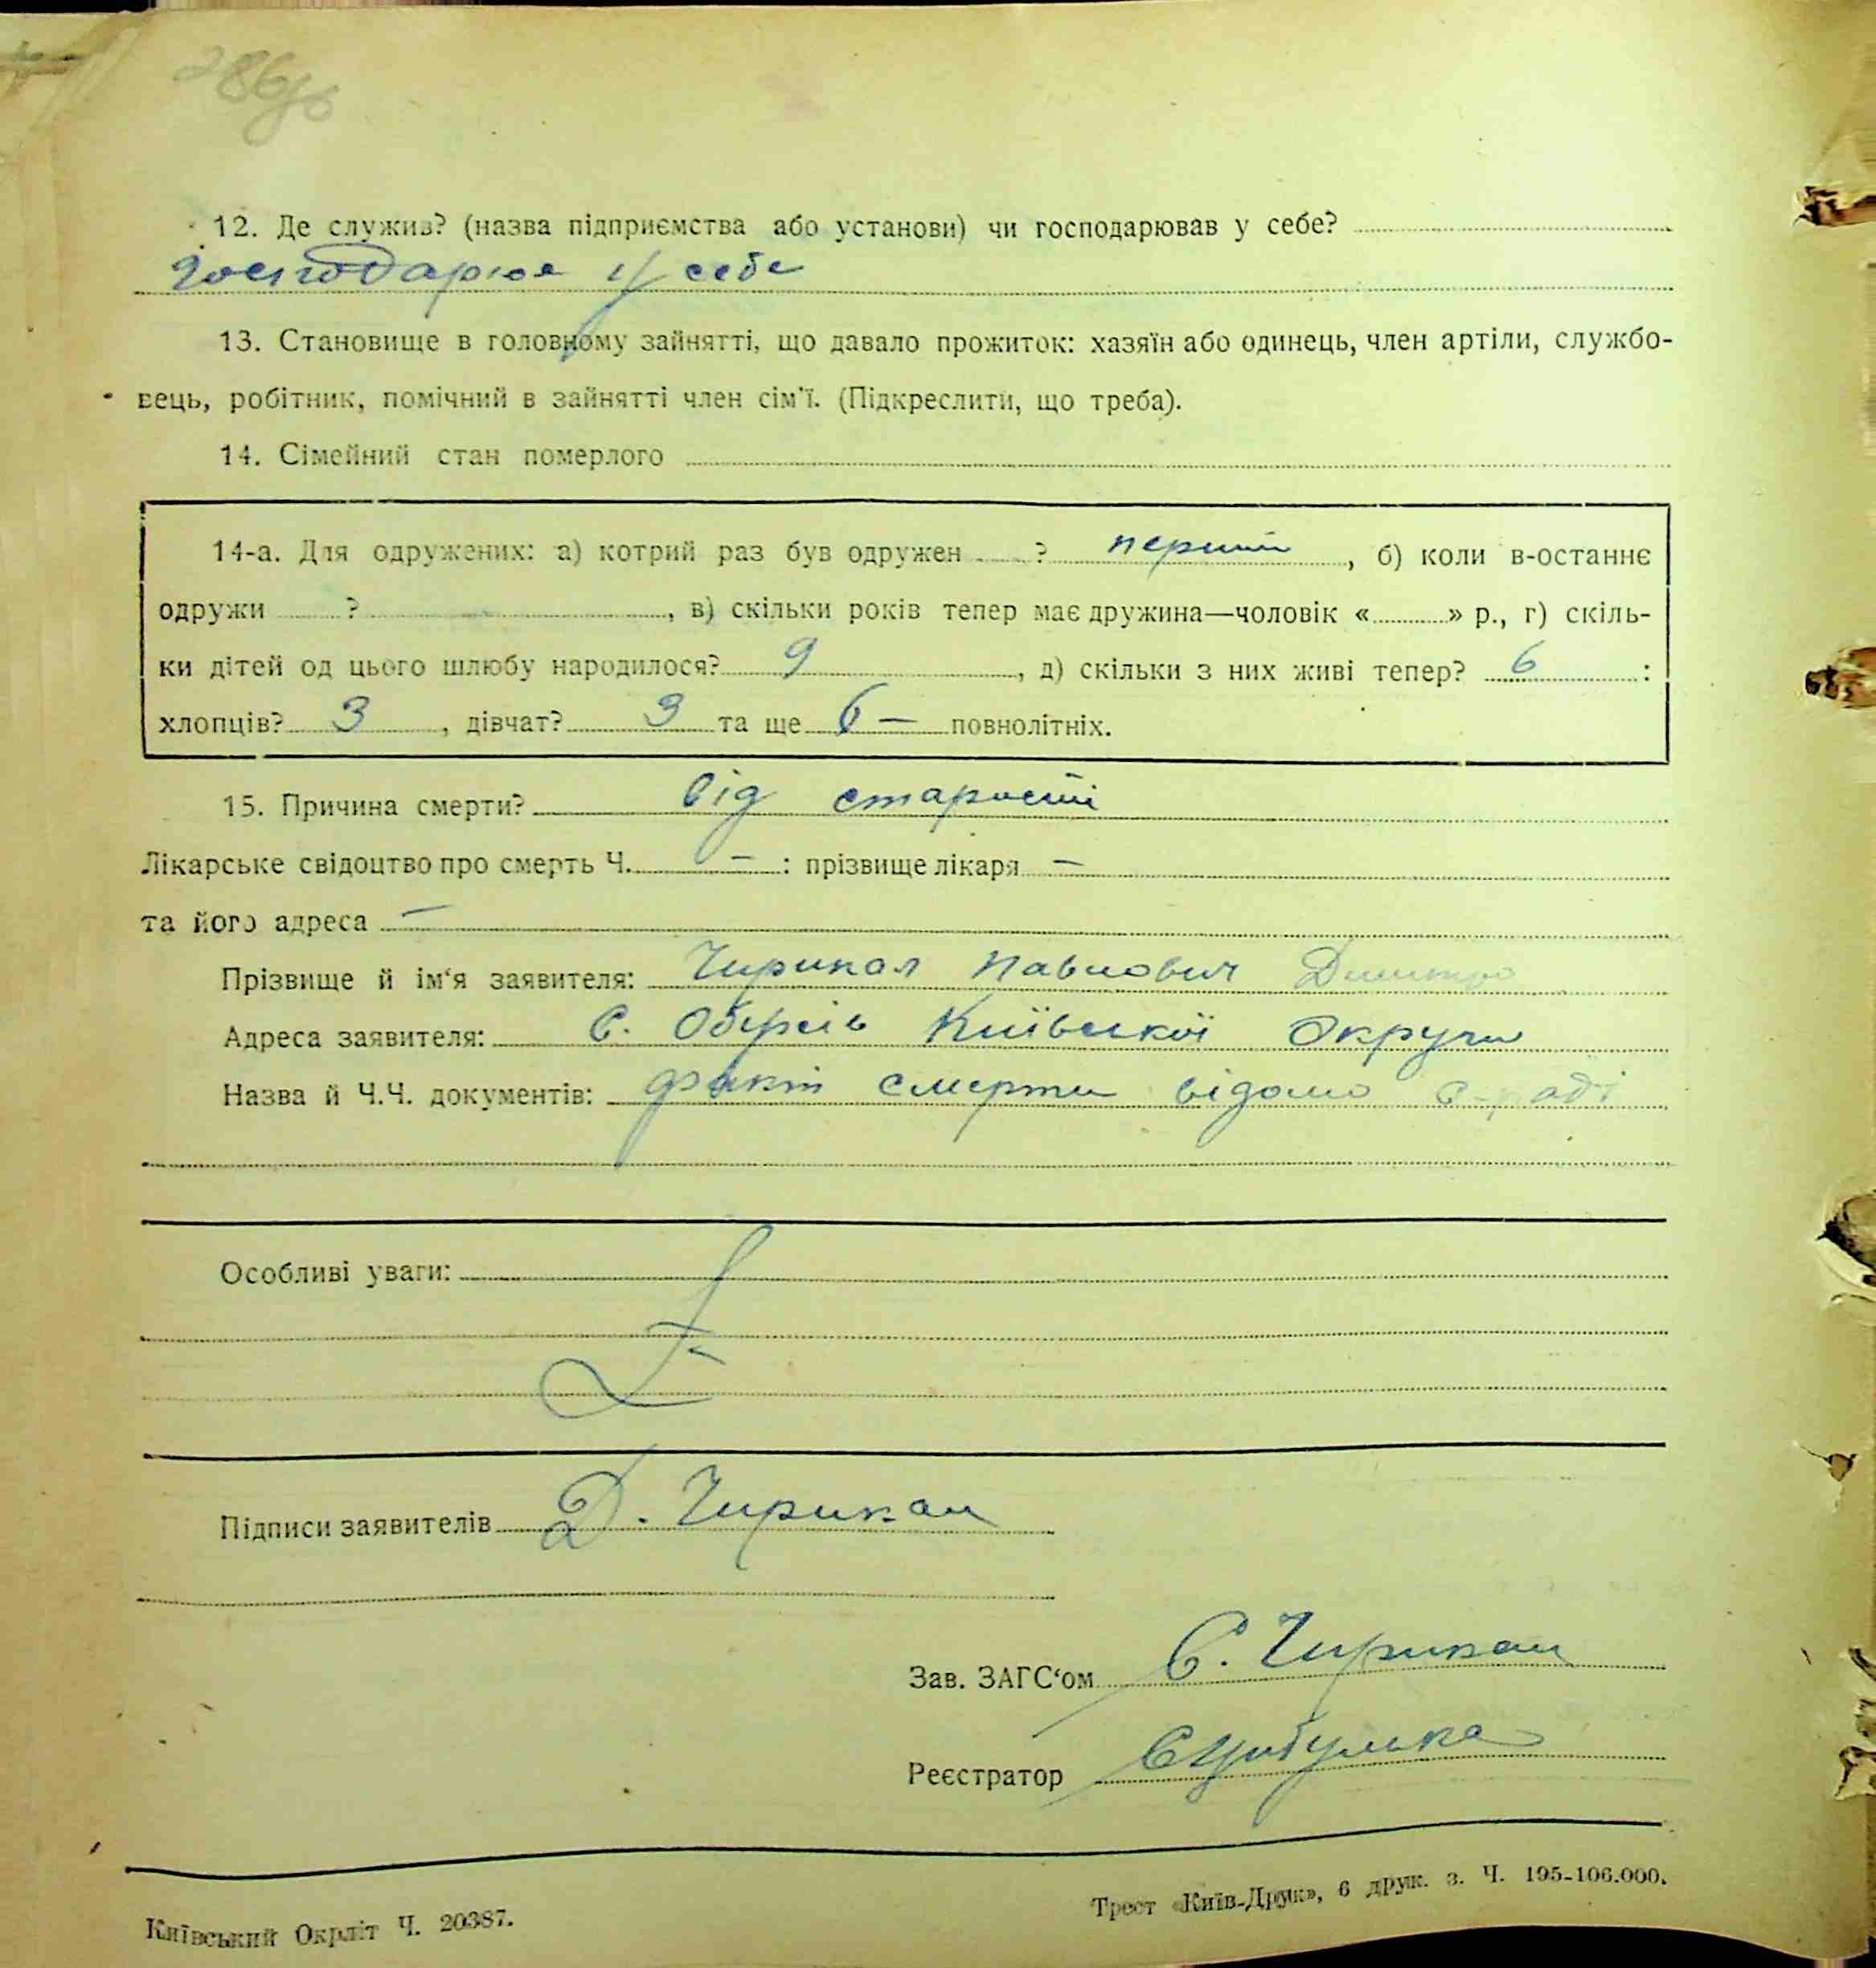 286зв
12. Де служив? (назва підприємства або установи) чи господарював у себе?
господарює у себе
13. Становище в головному зайнятті, що давало прожиток: хазяїн або одинець, член артіли, службо-
вець, робітник, помічний в зайнятті член сім'ї. (Підкреслити, що треба).
14. Сімейний стан померлого
14-а. Для одружених: а) котрий раз був одружен ? перший, б) коли в-останнє
одружи ? , в) скільки років тепер має дружина—чоловік « » р., г) скіль-
ки дітей од цього шлюбу народилося? 9 , д) скільки з них живі тепер? 6 :
хлопців? 3 , дівчат? 3 та ще 6 — повнолітніх.
15. Причина смерти? від старости
Лікарське свідоцтво про смерть Ч. — : прізвище лікаря —
та його адреса —
Прізвище й ім'я заявителя: Чирикал Павлович Дмитро
Адреса заявителя: С. Київської Округи
Назва й Ч.Ч. документів: факт смерти відомо с-раді
Особливі уваги:
Підписи заявителів Д. Чирикал
Зав. ЗАГС'ом С. Чирикал
Реєстратор
Київський Окрліт Ч. 20387.
Трест «Київ-Друк», 6 друк. з. Ч. 195-106.000.